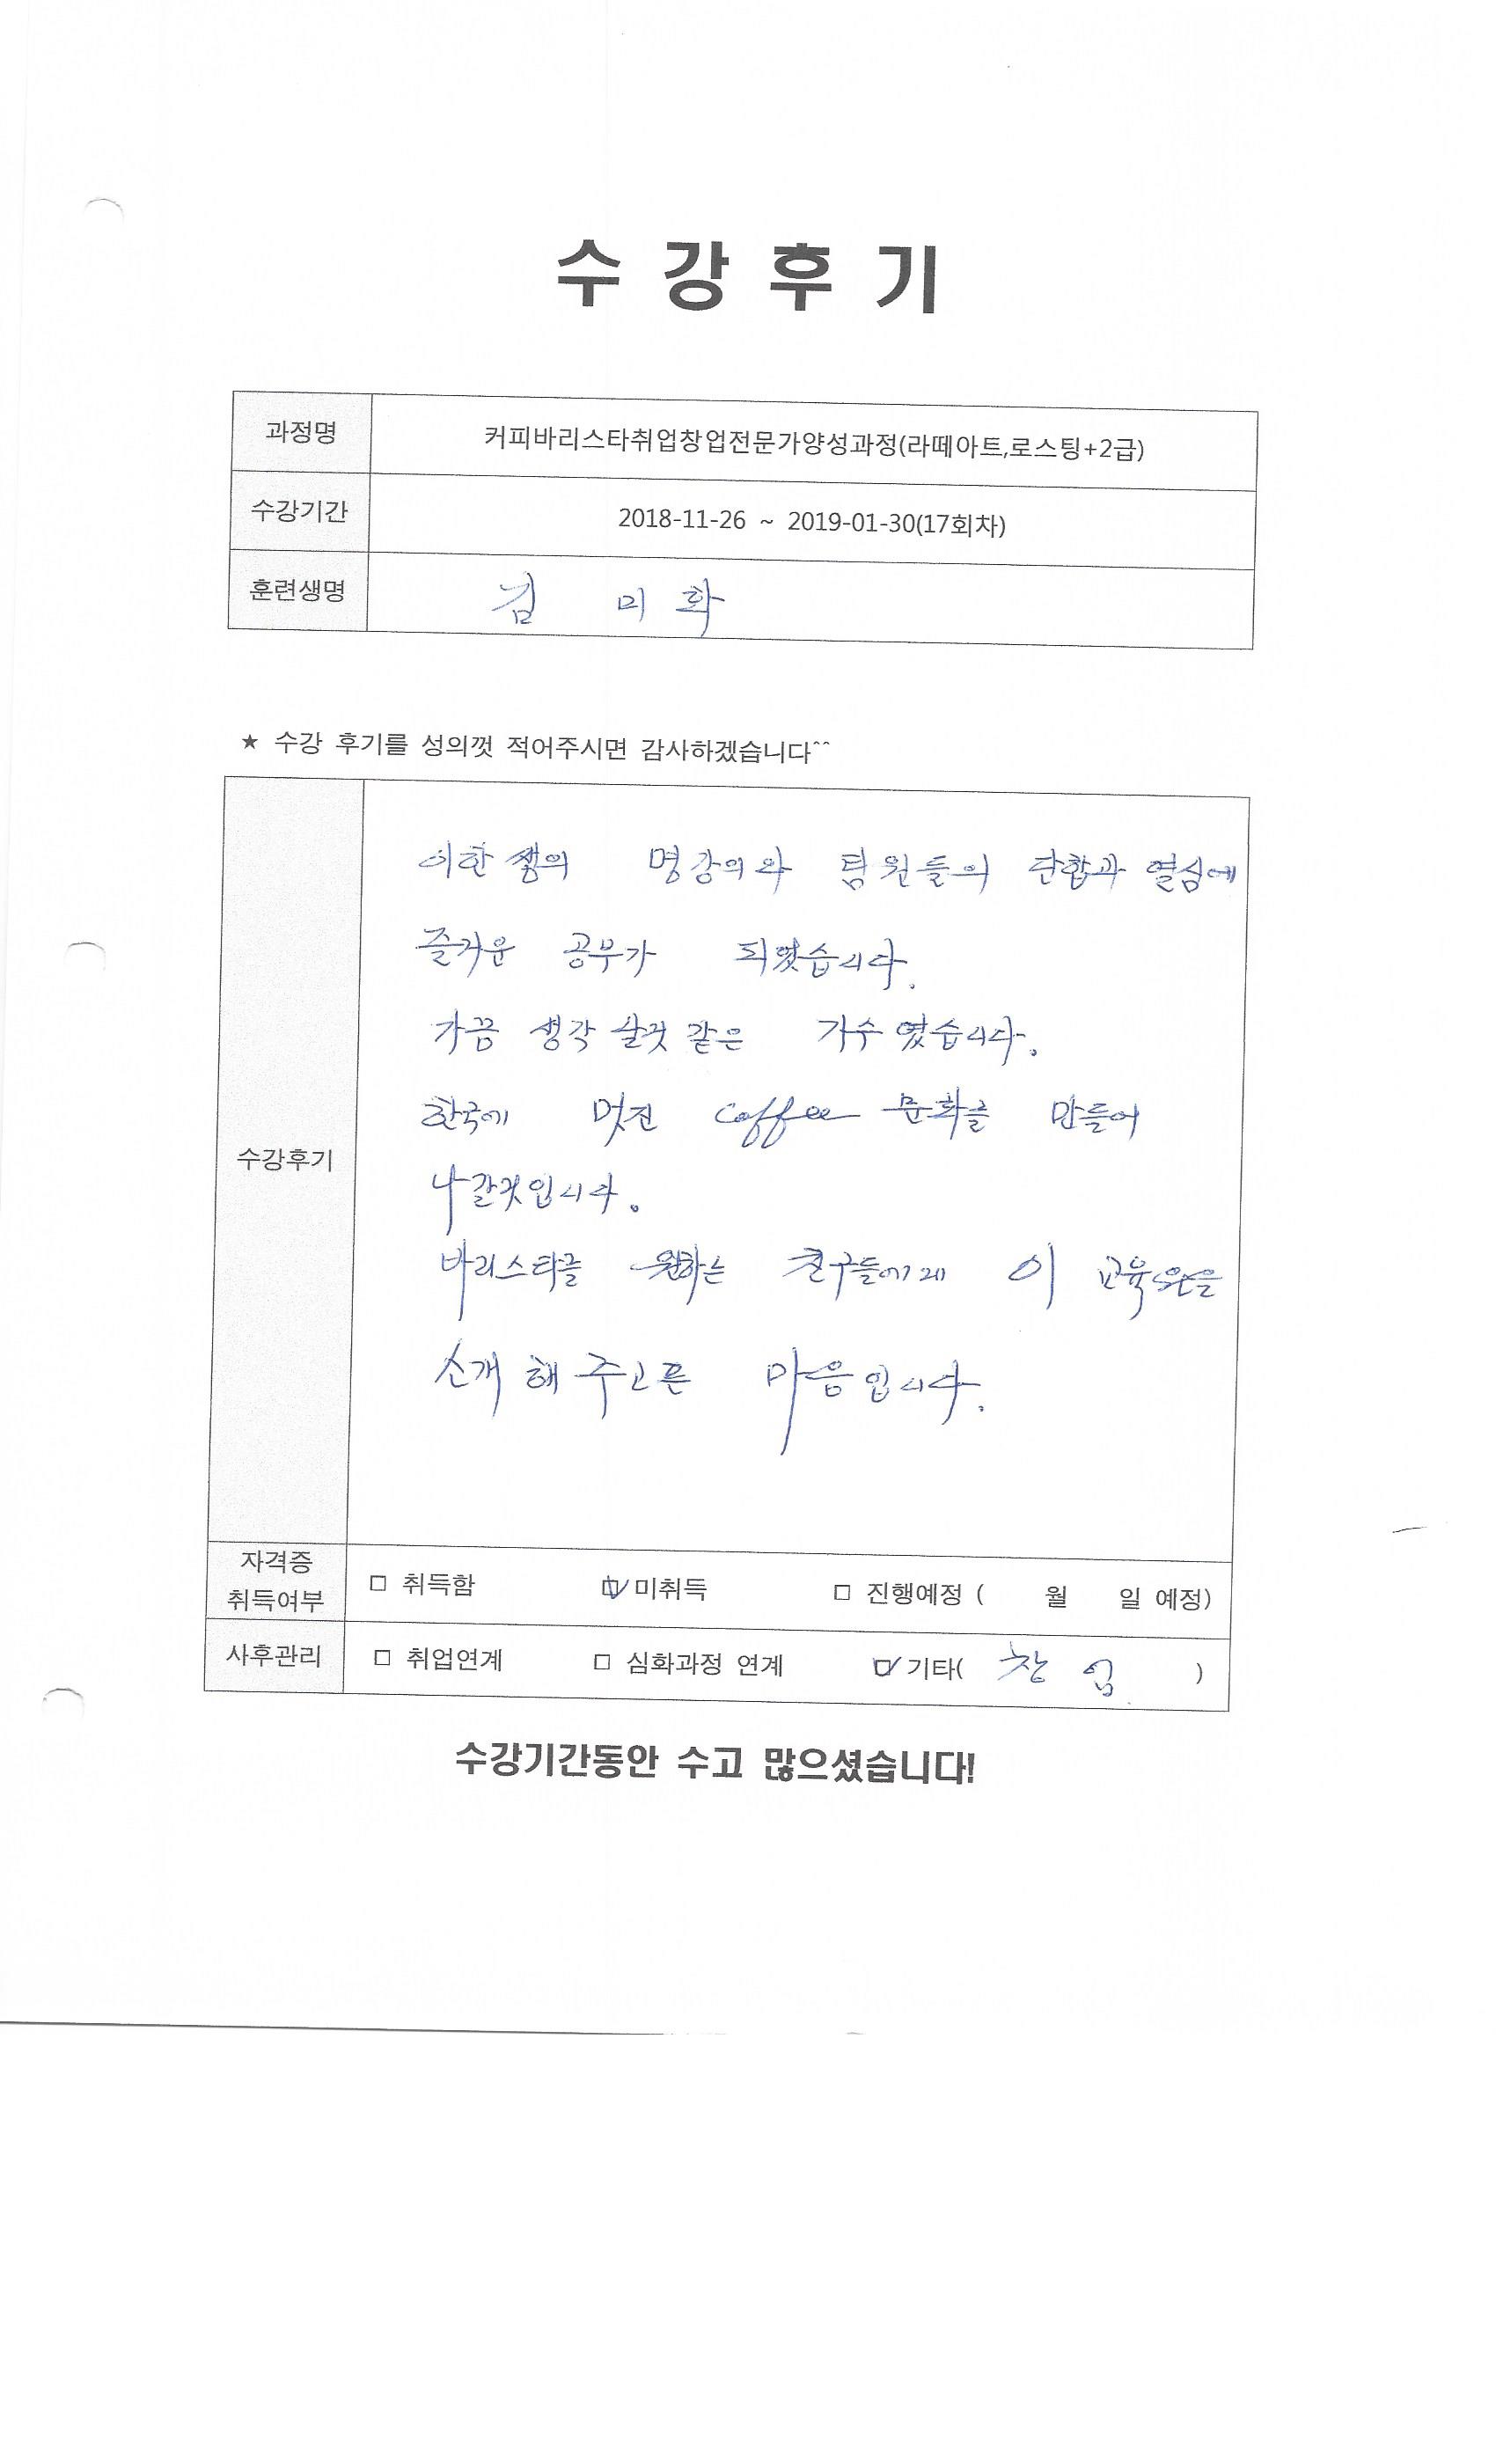 수 강 후 기
과정명 커피바리스타취업창업전문가양성과정(라떼아트,로스팅+2급)
수강기간 2018-11-26 ~ 2019-01-30(17회차)
훈련생명 김 미 화
★ 수강 후기를 성의껏 적어주시면 감사하겠습니다^^
이한 쌤의 명강의와 팀원들의 단합과 열심에
즐거운 공부가 되었습니다.
가끔 생각 날것 같은 가수 였습니다.
한국에 멋진 coffee 문화를 만들어
수강후기
나갈것입니다.
바리스타를 원하는 친구들에게 이 교육원을
소개 해 주고픈 마음입니다.
자격증 취득여부 □ 취득함 ☑ 미취득 □ 진행예정 ( 월 일 예정)
사후관리 □ 취업연계 □ 심화과정 연계 ☑ 기타( 창 업 )
수강기간동안 수고 많으셨습니다!